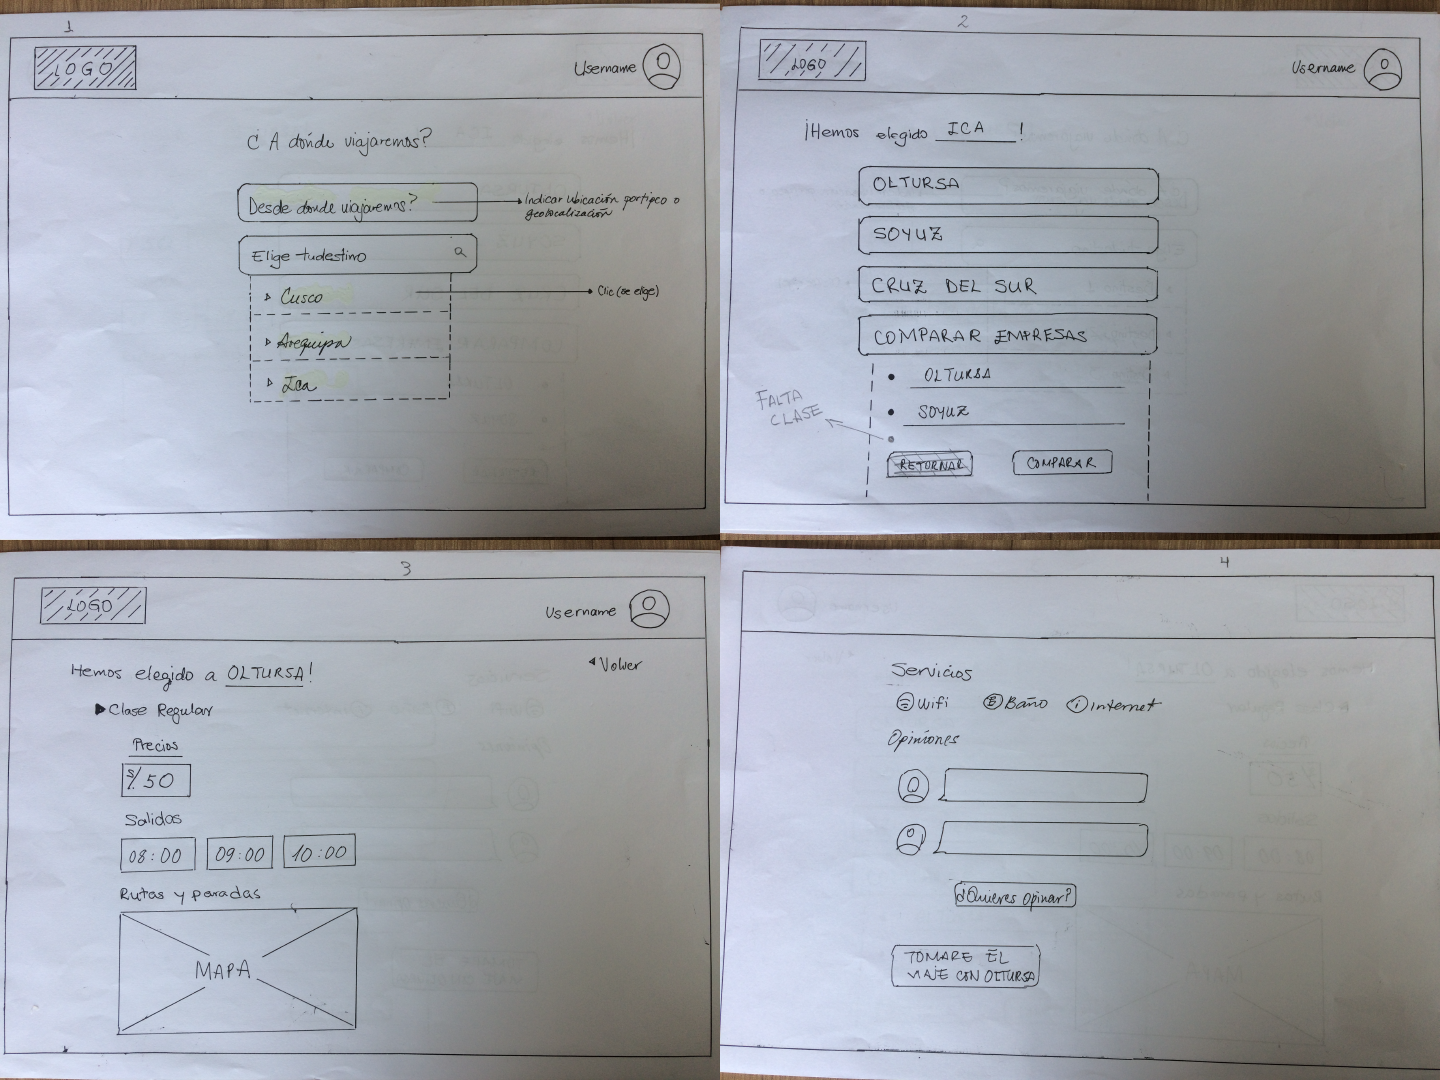 1
LOGO
Username
¿A dónde viajaremos?
Desde donde viajaremos?
Indicar ubicación por tipeo o
geolocalización
Elige tu destino
Cusco
Clic (se elige)
Arequipa
Ica
2
LOGO
Username
¡Hemos elegido ICA !
OLTURSA
SOYUZ
CRUZ DEL SUR
COMPARAR EMPRESAS
OLTURSA
SOYUZ
FALTA
CLASE
RETORNAR
COMPARAR
3
LOGO
Username
Hemos elegido a OLTURSA!
Volver
Clase Regular
Precios
S/. 50
Salidas
08:00
09:00
10:00
Rutas y paradas
MAPA
4
Servicios
Wifi
Baño
Internet
Opiniones
¿Quieres opinar?
TOMARE EL
VIAJE CON OLTURSA